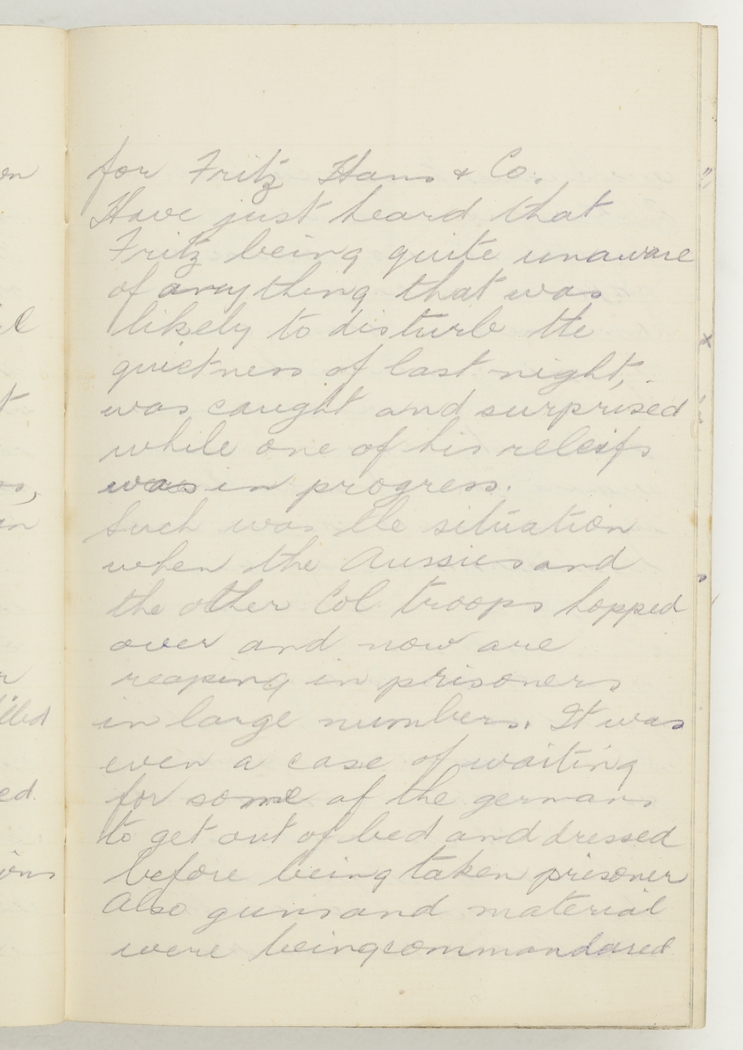 for Fritz Hans & Co.
Have just heard that
Fritz being quite unaware
of anything that was
likely to disturb the
quietness of last night,
was caught and surprised
while one of his releifs
was in progress.
Such was the situation
when the Aussies and
the other Col troops hopped
over and now are
reaping in prisoners
in large numbers. It was
even a case of waiting
for some of the germans
to get out of bed and dressed
before being taken prisoner
Also guns and material
were being commandared